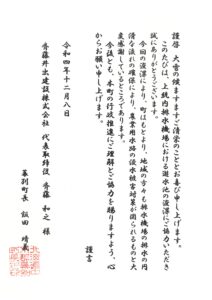 謹啓　大雪の候ますますご清栄のこととお喜び申し上げます。
このたびは、上統内排水機場における遊水池の浚渫にご協力いただき
誠にありがとうございます。
今回の浚渫により、町はもとより、地域の方々も排水機場の排水の円
滑な流れの確保により、農業用水路の湛水被害対策が図られるものと大
変感謝しているところであります。
今後とも、本町の行政推進にご理解とご協力を賜りますよう、心
からお願い申し上げます。
謹言
令和四年十二月八日
齊藤井出建設株式会社　代表取締役　齊藤　和之　様
幕別町長　飯田　晴義